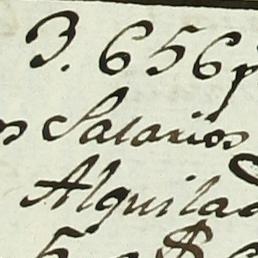 3. 656 p
os Salarios
Alquilad